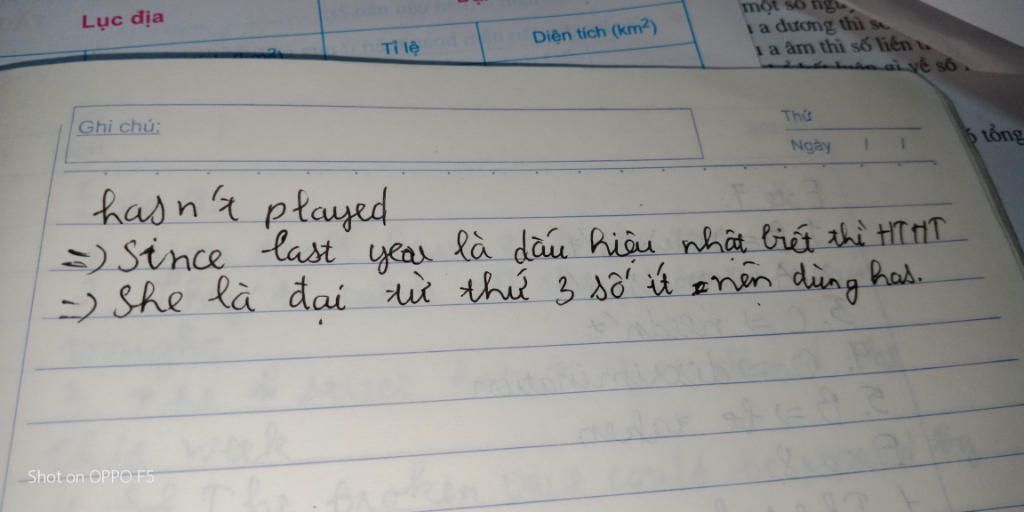 Lục địa
Tỉ lệ
Diện tích (km²)
một số
a dương thì
a âm thì số liền
về số
tổng
Ghi chú:
Thứ
Ngày / /
hasn't played
=) Since last year là dấu hiệu nhật biết thì HTHT
=) She là đại từ thứ 3 số ít nên dùng has.
Shot on OPPO F5